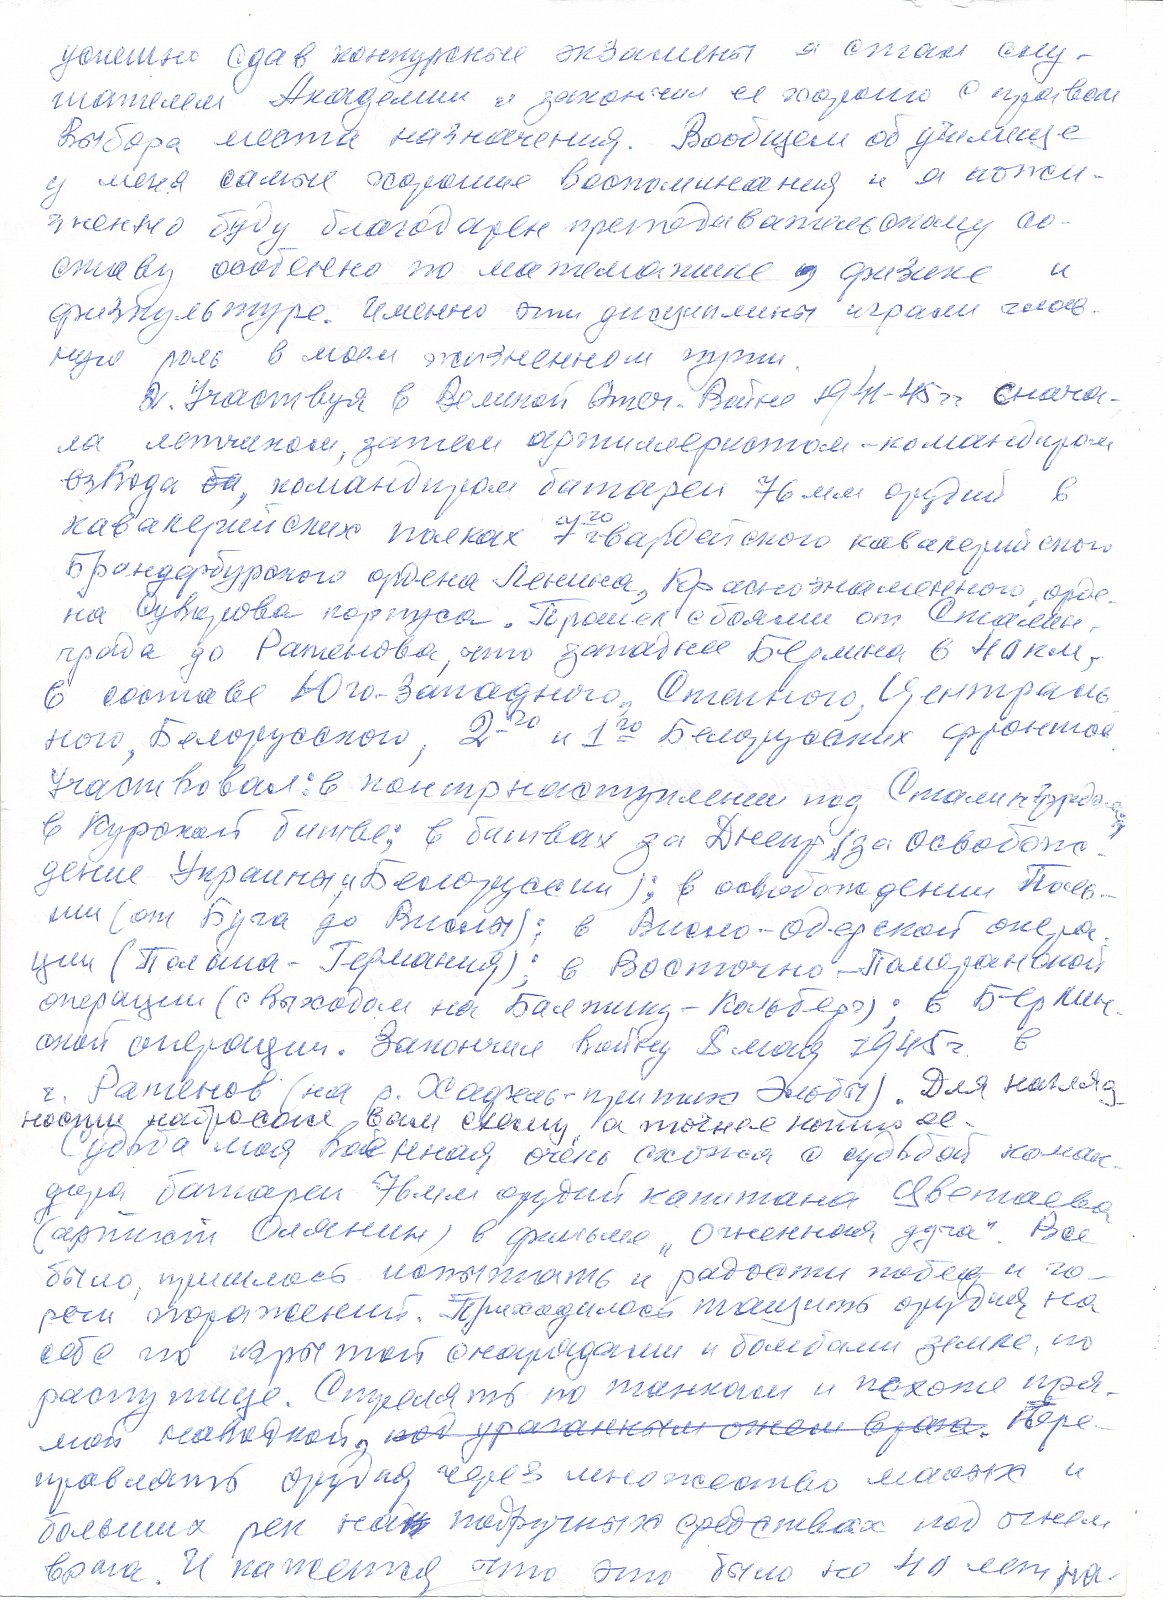 успешно сдав конкурсные экзамены я стал слу-
шателем Академии и закончил ее хорошо с правом
выбора места назначения. Вообщем об училище
у меня самые хорошие воспоминания и я пожи-
зненно буду благодарен преподавательскому со-
ставу особенно по математике, физике и
физкультуре. Именно эти дисциплины играли глав-
ную роль в моем жизненном пути.
2. Участвуя в Великой Отеч. Войне 1941-45 гг снача-
ла летчиком, затем артиллеристом-командиром
взвода ба, командиром батареи 76 мм орудий в
кавалерийских полках 7го гвардейского кавалерийского
Брандербургского ордена Ленина, Краснознаменного, орде-
на Суворова корпуса. Прошел с боями от Сталин-
града до Ратенова, что западнее Берлина в 40 км,
в составе Юго-Западного, Степного, Централь
ного, Белорусского, 2-го и 1го Белорусских фронтов
Участвовал: в контрнаступлении под Сталинградом;
в Курской битве; в битвах за Днепр (за освобож-
дение Украины и Белоруссии); в освобождении Поль-
ши (от Буга до Вислы); в Висло-Одерской опера-
ции (Польша-Германия); в Восточно-Померанской
операции (с выходом на Балтику-Кольберг); в Берлин-
ской операции. Закончил войну 8 мая 1945 г. в
г. Ратенов (на р. Хафель-приток Эльбы). Для нагляд
ности набросал вам схему, а точнее копию ее.
Судьба моя военная очень схожа с судьбой коман-
дира батареи 76 мм орудий капитана Цветаева
(артист Олялин) в фильме „Огненная дуга". Все
было, пришлось испытать и радости побед и го-
речи поражений. Приходилось тащить орудия на
себе по изрытой снарядами и бомбами земле, по
распутице. Стрелять по танкам и пехоте пря-
мой наводкой, под ураганным огнем врага. Пере-
правлять орудия через множество малых и
больших рек на подручных средствах под огнем
врага. И кажется что это было не 40 лет на-